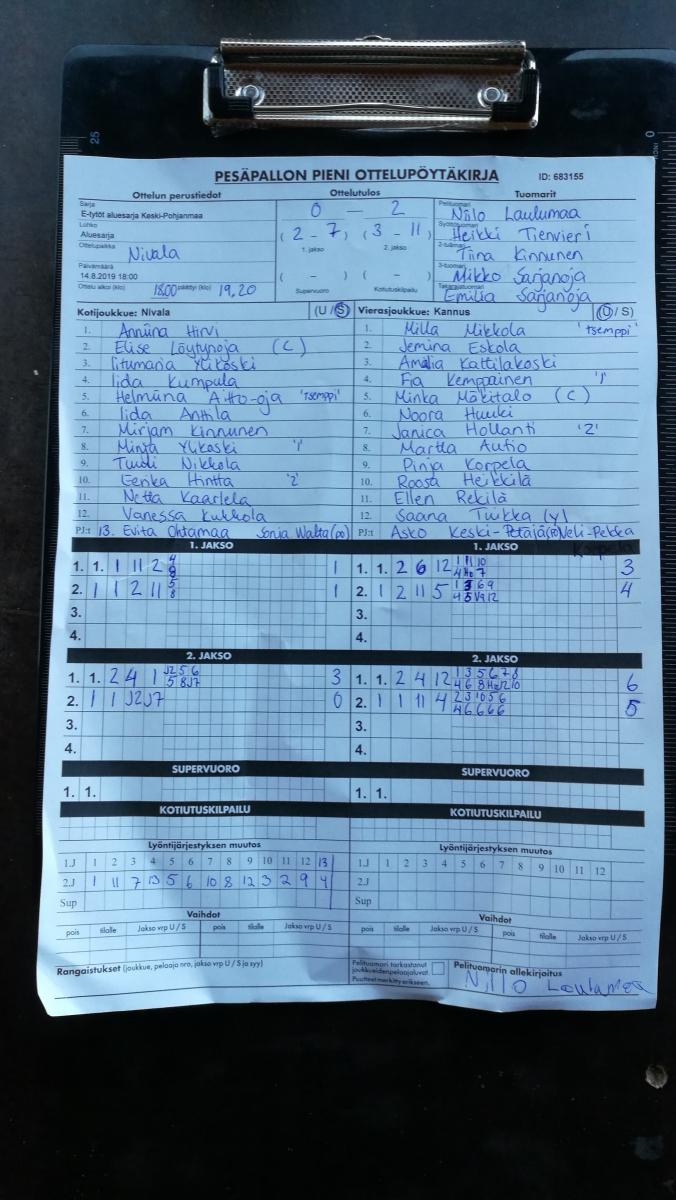 PESÄPALLON PIENI OTTELUPÖYTÄKIRJA ID: 683155
Ottelun perustiedot Ottelutulos Tuomarit
Sarja
E-tytöt aluesarja Keski-Pohjanmaa
Lohko
Aluesarja
Ottelupaikka Nivala
Päivämäärä
14.8.2019 18:00
Ottelu alkoi (klo) 18.00 päättyi (klo) 19.20
0 — 2
(2 - 7) (3 - 11)
1. jakso 2. jakso
( - ) ( - )
Supervuoro Kotiutuskilpailu
Pelituomari Niilo Laulumaa
Syöttötuomari Heikki Tienvieri
2-tuomari Tiina Kinnunen
3-tuomari Mikko Sarjanoja
Takarajatuomari Emilia Sarjanoja
Kotijoukkue: Nivala (U / S)
1. Anniina Hirvi
2. Elise Löytynoja (C)
3. Iitumaria Ylikoski
4. Iida Kumpula
5. Helmiina Aitto-oja 'tsemppi'
6. Iida Anttila
7. Mirjam Kinnunen
8. Minja Ylikoski '1'
9. Tuuli Nikkola
10. Eerika Hintta '2'
11. Netta Kaarlela
12. Vanessa Kukkola
PJ:t 13. Evita Ohtamaa Sonja Walta (po)
Vierasjoukkue: Kannus (U / S)
1. Milla Mikkola 'tsemppi'
2. Jemina Eskola
3. Amalia Kattilakoski
4. Fia Kemppainen '1'
5. Minka Mäkitalo (C)
6. Noora Huuki
7. Janica Hollanti '2'
8. Martta Autio
9. Pinja Korpela
10. Roosa Heikkilä
11. Ellen Rekilä
12. Saana Tuikka (v)
PJ:t Asko Keski-Petäjä Veli-Pekka
Korpela
1. JAKSO
1. 1. 1 11 2 1
2. 1 1 2 11 5 8 1
3.
4.
1. JAKSO
1. 1. 2 6 12 3
2. 1 2 11 5 4
3.
4.
2. JAKSO
1. 1. 2 4 1 3
2. 1 1 J2 J7 0
3.
4.
2. JAKSO
1. 1. 2 4 12 6
2. 1 1 11 4 5
3.
4.
SUPERVUORO
1. 1.
SUPERVUORO
1. 1.
KOTIUTUSKILPAILU
KOTIUTUSKILPAILU
Lyöntijärjestyksen muutos
1.J 1 2 3 4 5 6 7 8 9 10 11 12 13
2.J 1 11 7 13 5 6 10 8 12 3 2 9 4
Sup
Lyöntijärjestyksen muutos
1.J 1 2 3 4 5 6 7 8 9 10 11 12
2.J
Sup
Vaihdot
pois tilalle Jakso vrp U / S pois tilalle Jakso vrp U / S
Vaihdot
pois tilalle Jakso vrp U / S pois tilalle Jakso vrp U / S
Rangaistukset (joukkue, pelaaja nro, jakso vrp U / S ja syy)
Pelituomari tarkastanut
joukkueidenpelaajaluvat.
Puutteet merkitty erikseen.
Pelituomarin allekirjoitus
Niilo Laulumaa
25
0